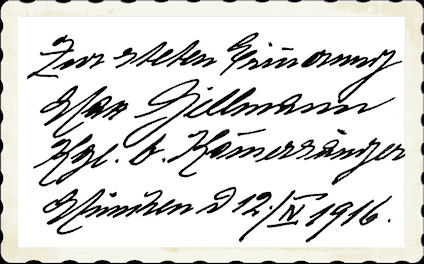 Zur steten Erinnerung
Max Gillmann
Kgl. b. Kammersänger
München d 12./IV 1916.